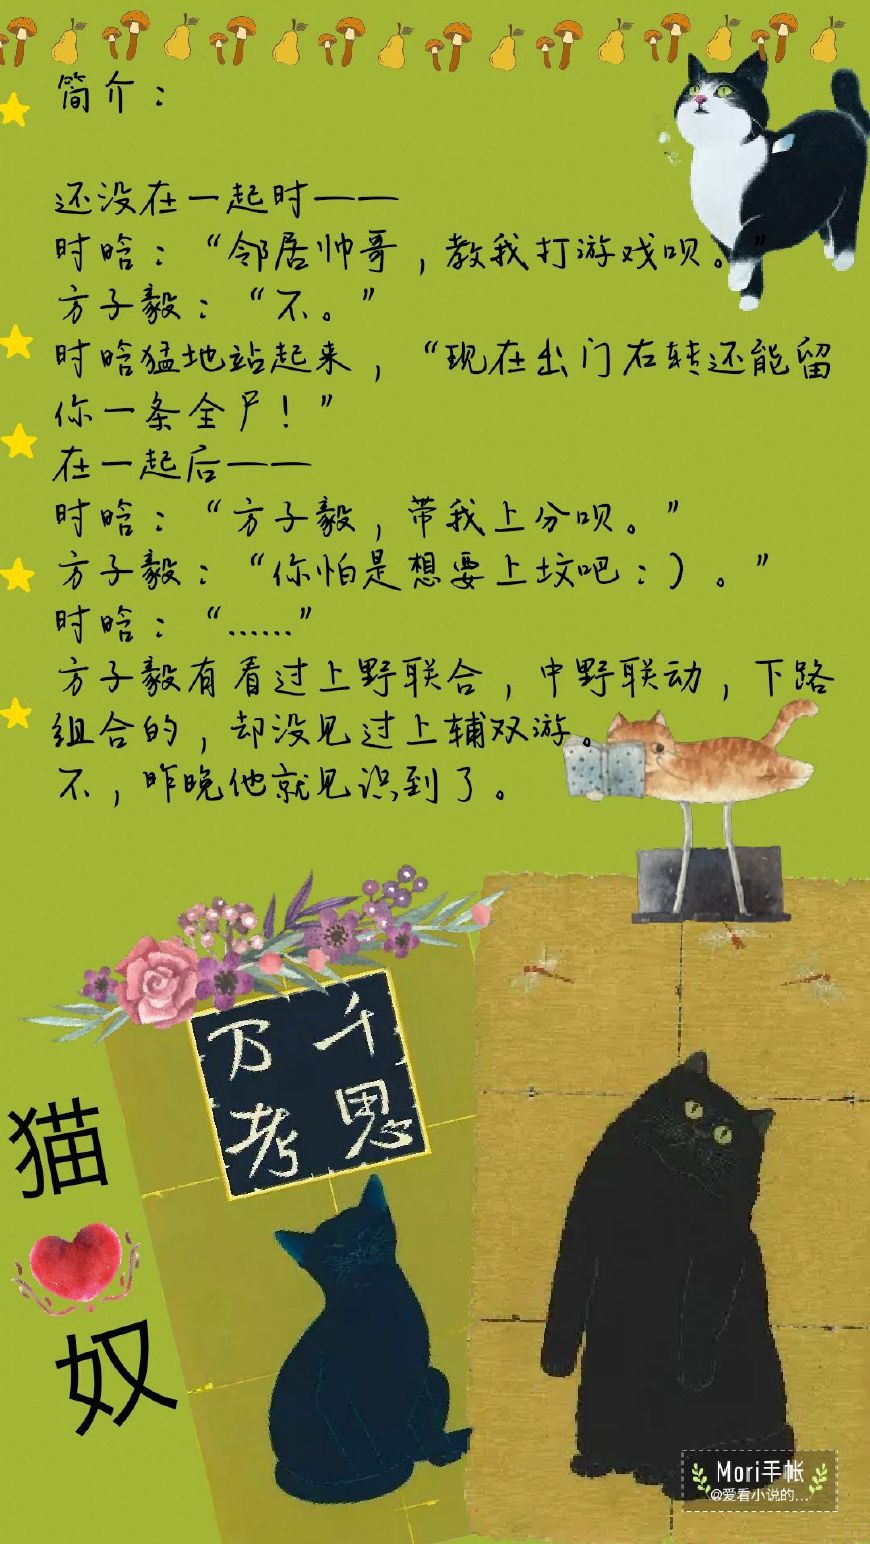 简介：
还没在一起时——
时晗：“邻居帅哥，教我打游戏呗。”
方子毅：“不。”
时晗猛地站起来，“现在出门右转还能留
你一条全尸！”
在一起后——
时晗：“方子毅，带我上分呗。”
方子毅：“你怕是想要上坟吧：）。”
时晗：“……”
方子毅有看过上野联合，中野联动，下路
组合的，却没见过上辅双游。
不，昨晚他就见识到了。
万千
考思
猫
奴
Mori手帐
@爱看小说的...